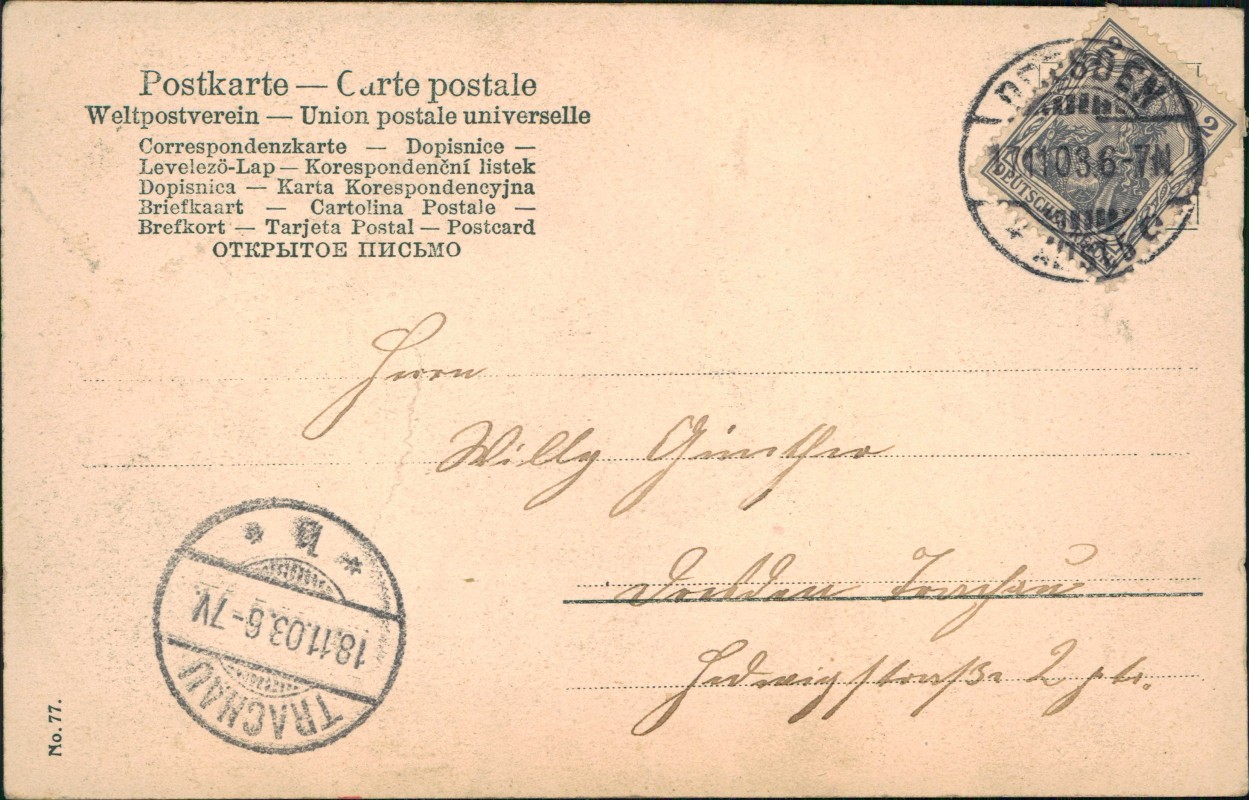 Postkarte — Carte postale
Weltpostverein — Union postale universelle
Correspondenzkarte — Dopisnice —
Levelező-Lap — Korespondenční listek
Dopisnica — Karta Korespondencyjna
Briefkaart — Cartolina Postale —
Brefkort — Tarjeta Postal — Postcard
ОТКРЫТОЕ ПИСЬМО
DRESDEN
17.11.03.6-7N.
2
2
DEUTSCHES
Herrn
Willy Günther
Dresden Trachau
Hedwigstraße 2 ptr.
* b *
18.11.03.6-7V.
TRACHAU
No. 77.